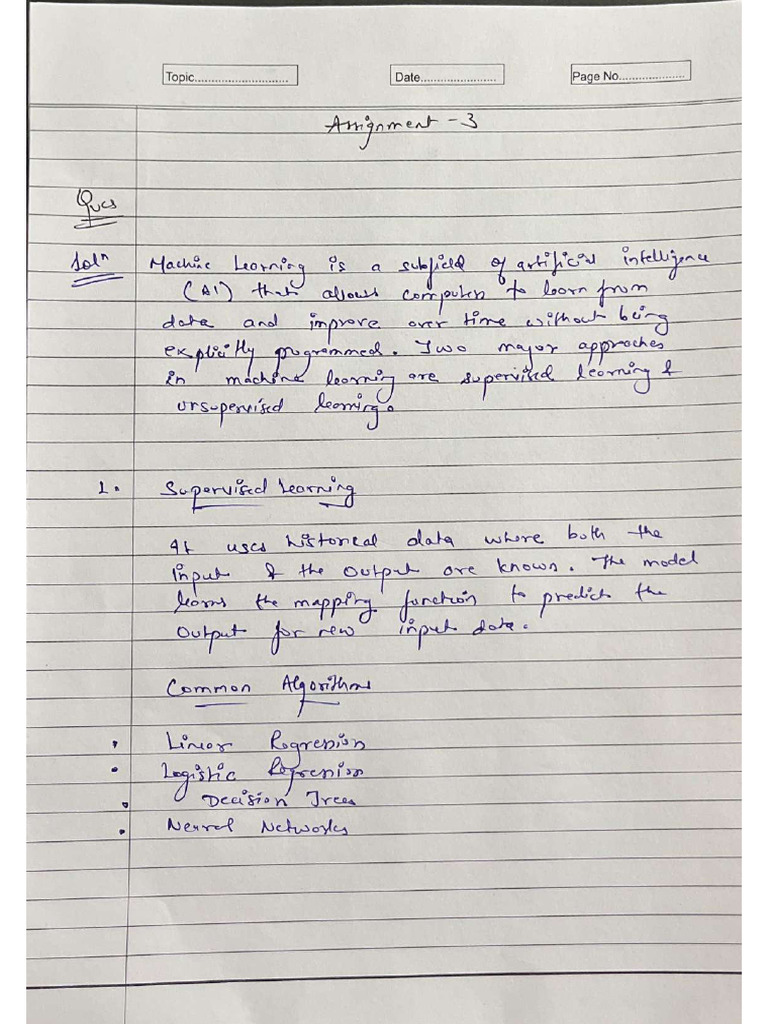 Topic............................
Date.......................
Page No....................
Assignment - 3
Ques
Solⁿ Machine Learning is a subfield of artificial intelligence
(AI) that allows computers to learn from
data and improve over time without being
explicitly programmed. Two major approaches
in machine learning are supervised learning &
unsupervised learning.
1. Supervised Learning
It uses historical data where both the
input & the output are known. The model
learns the mapping function to predict the
output for new input data.
Common Algorithms
• Linear Regression
• Logistic Regression
• Decision Trees
• Neural Networks